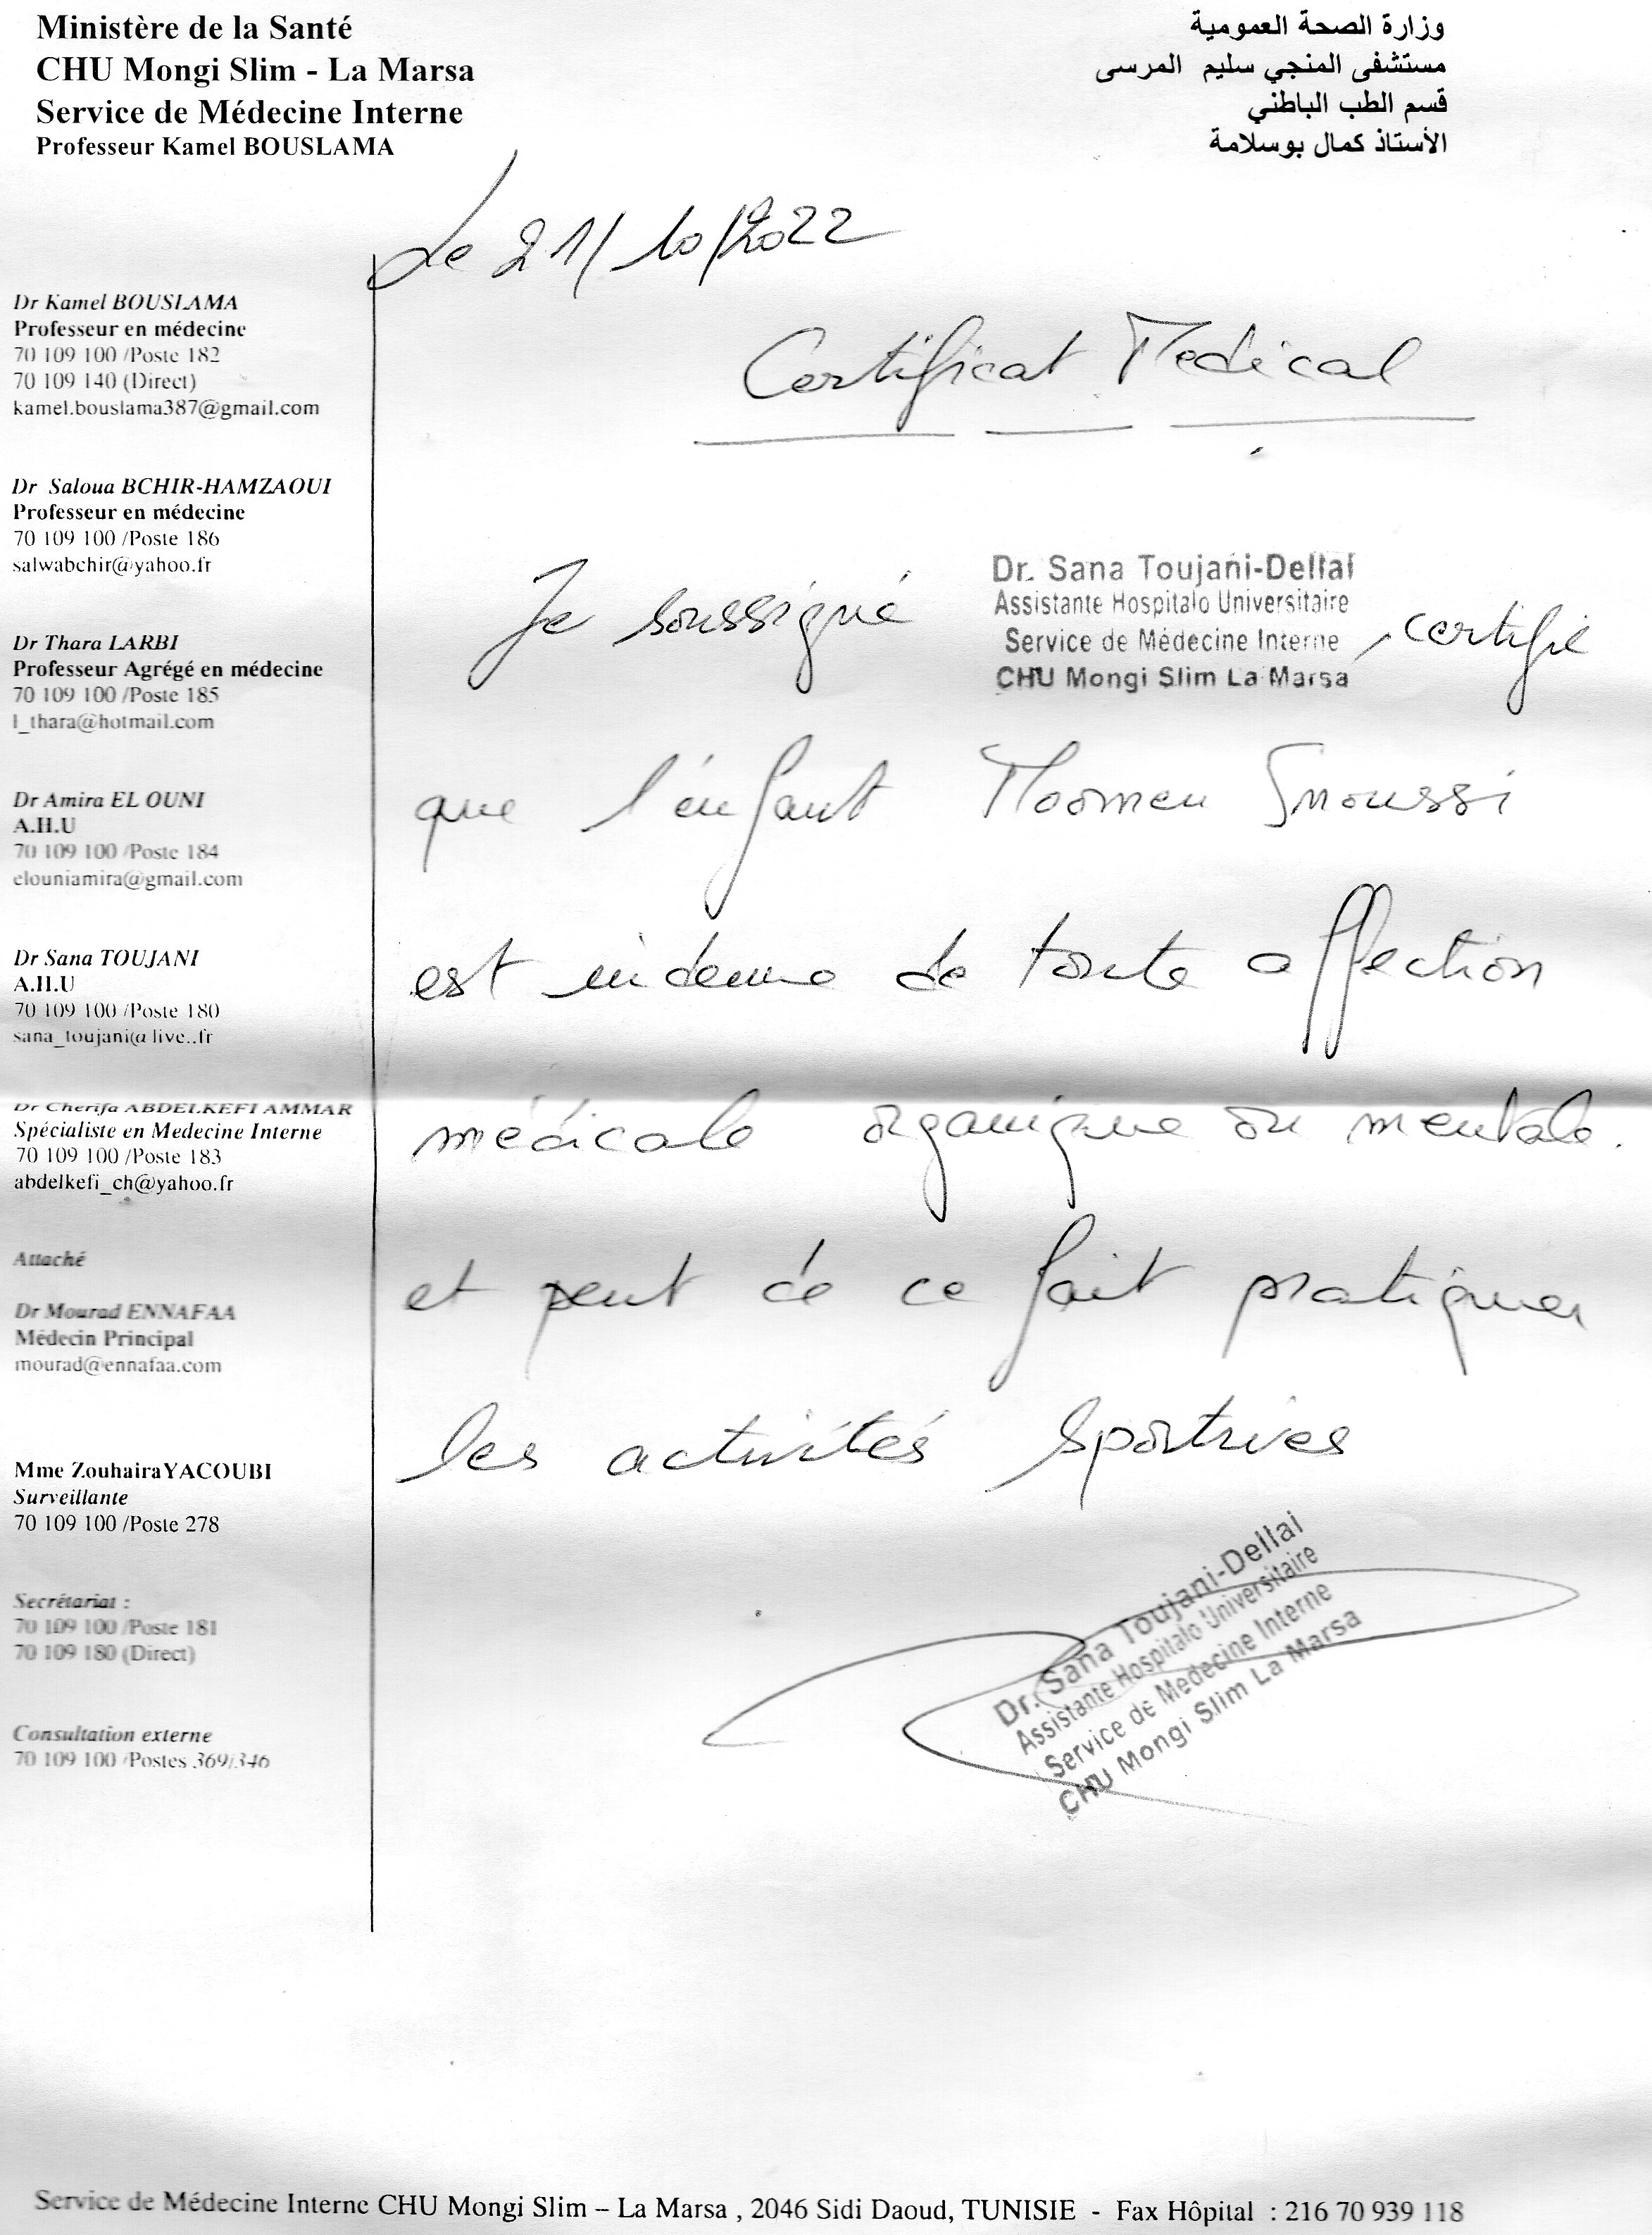 Ministère de la Santé
CHU Mongi Slim - La Marsa
Service de Médecine Interne
Professeur Kamel BOUSLAMA
وزارة الصحة العمومية
مستشفى المنجي سليم المرسى
قسم الطب الباطني
الأستاذ كمال بوسلامة
Dr Kamel BOUSLAMA
Professeur en médecine
70 109 100 /Poste 182
70 109 140 (Direct)
kamel.bouslama387@gmail.com
Dr Saloua BCHIR-HAMZAOUI
Professeur en médecine
70 109 100 /Poste 186
salwabchir@yahoo.fr
Dr Thara LARBI
Professeur Agrégé en médecine
70 109 100 /Poste 185
l_thara@hotmail.com
Dr Amira EL OUNI
A.H.U
70 109 100 /Poste 184
elouniamira@gmail.com
Dr Sana TOUJANI
A.H.U
70 109 100 /Poste 180
sana_toujani@live..fr
Dr Cherifa ABDELKEFI AMMAR
Spécialiste en Medecine Interne
70 109 100 /Poste 183
abdelkefi_ch@yahoo.fr
Attaché
Dr Mourad ENNAFAA
Médecin Principal
mourad@ennafaa.com
Mme Zouhaira YACOUBI
Surveillante
70 109 100 /Poste 278
Secrétariat :
70 109 100 /Poste 181
70 109 180 (Direct)
Consultation externe
70 109 100 /Postes 369/346
Le 21/10/2022
Certificat Medical
Je soussigné
Dr. Sana Toujani-Dellai
Assistante Hospitalo Universitaire
Service de Médecine Interne
CHU Mongi Slim La Marsa
, certifie
que l'enfant Moomen Smoussi
est indemne de toute affection
médicale organique ou mentale.
et peut de ce fait pratiquer
les activités sportives
Dr. Sana Toujani-Dellai
Assistante Hospitalo Universitaire
Service de Médecine Interne
CHU Mongi Slim La Marsa
Service de Médecine Interne CHU Mongi Slim – La Marsa , 2046 Sidi Daoud, TUNISIE - Fax Hôpital : 216 70 939 118